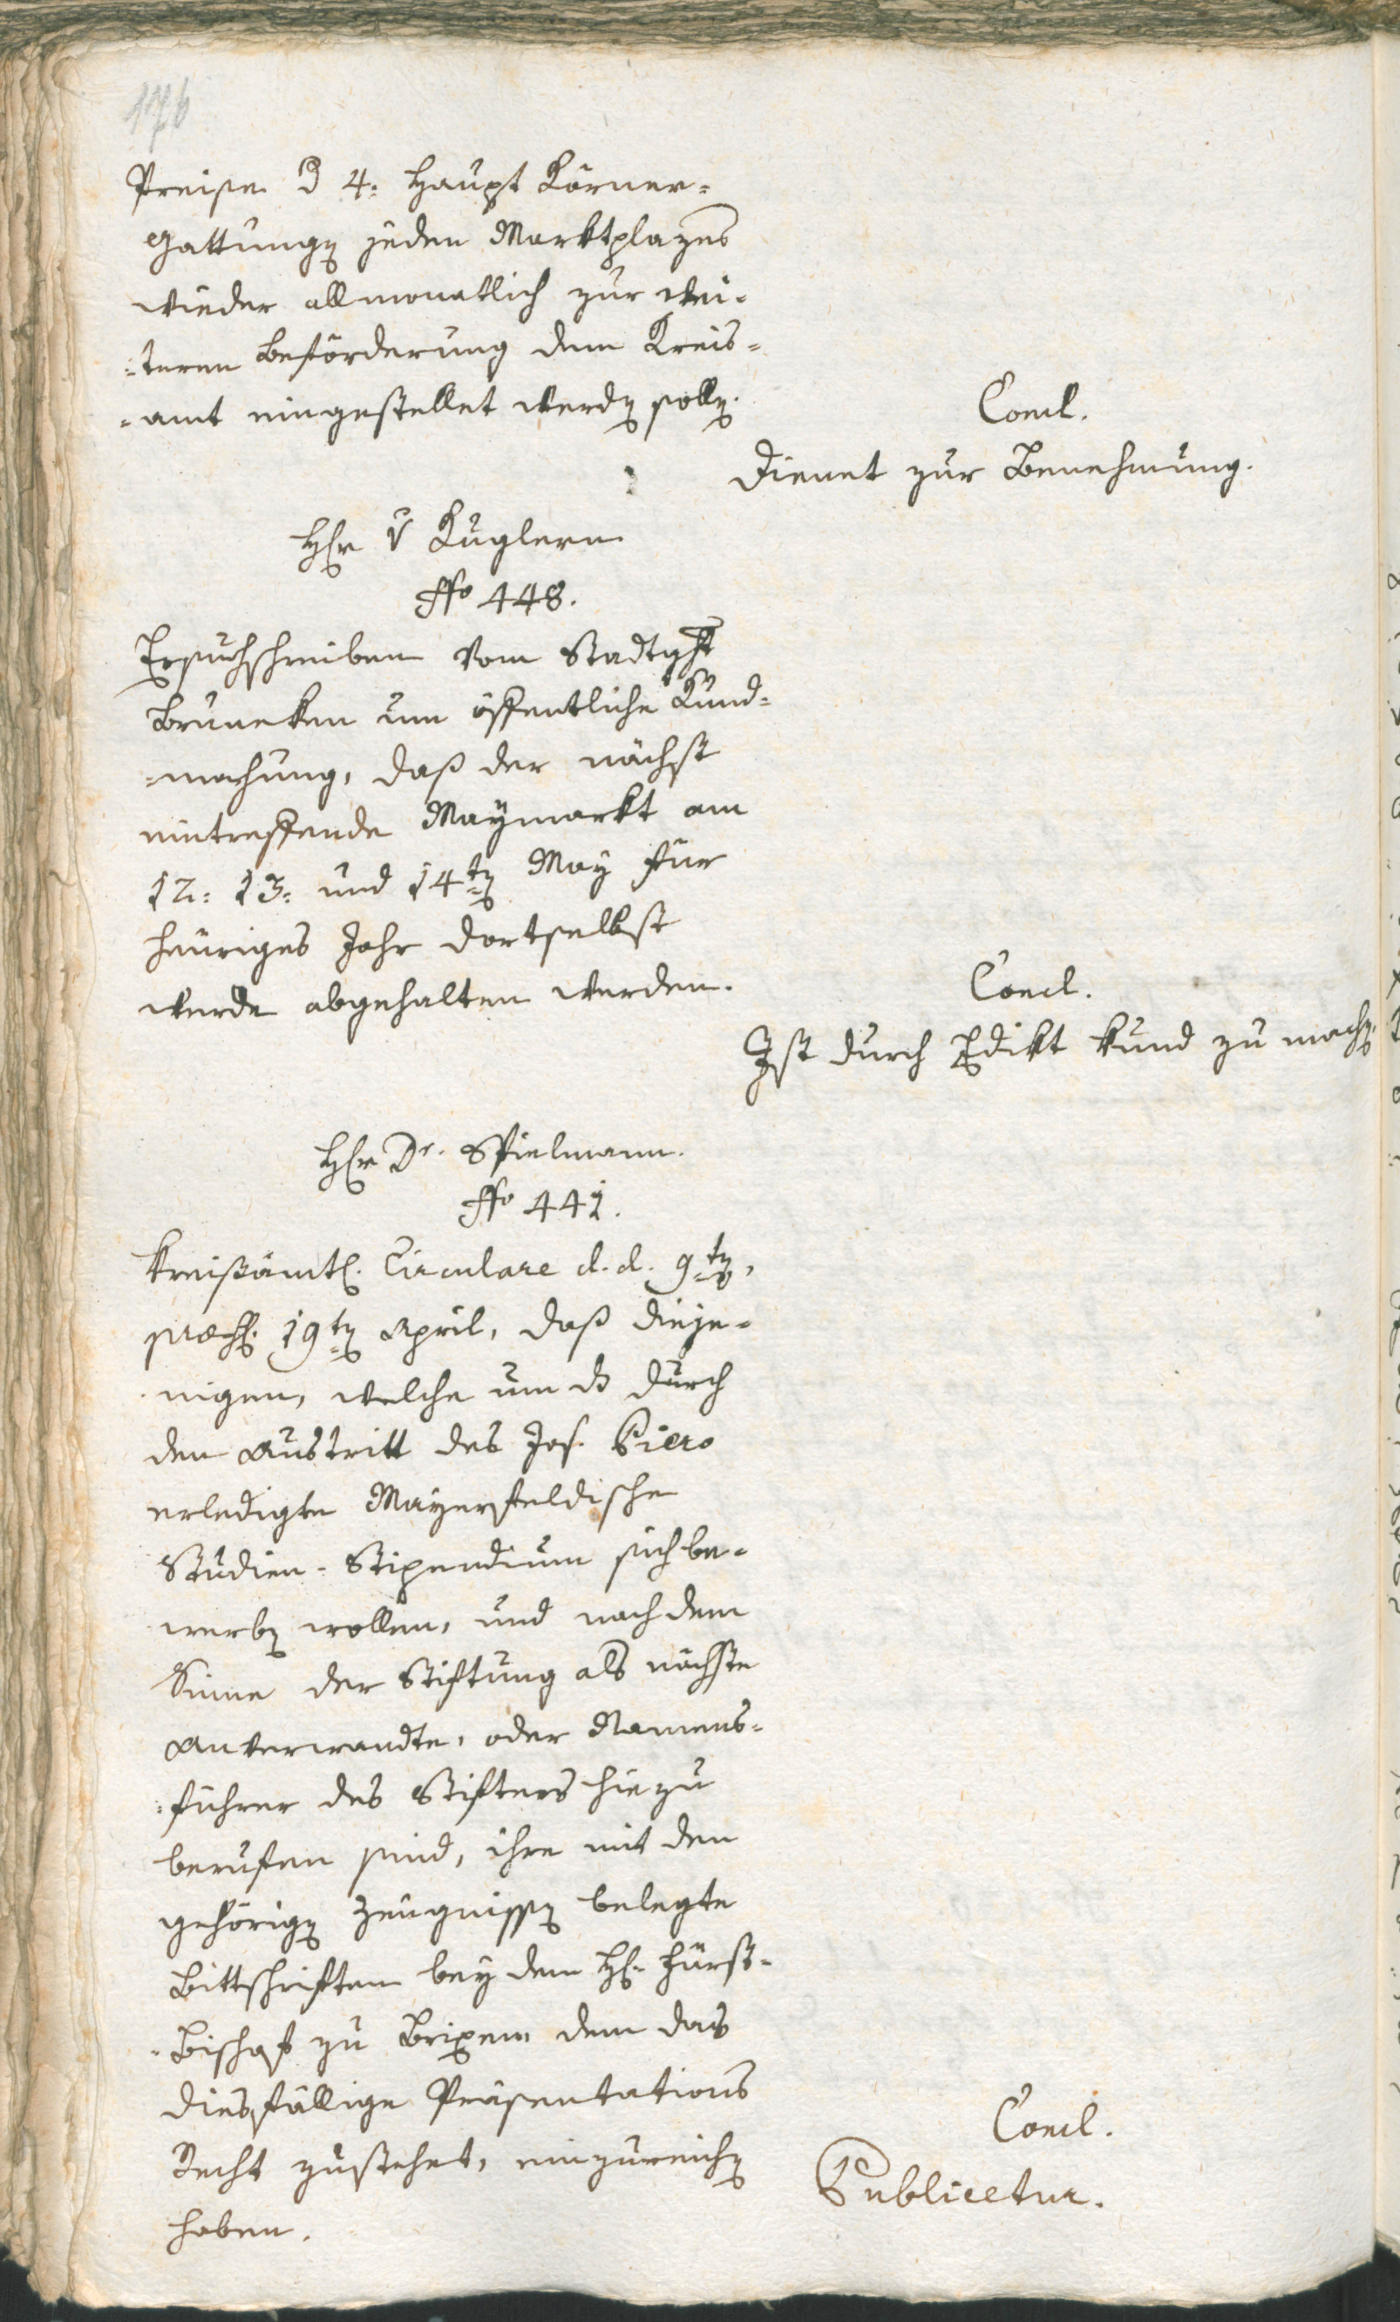 176
Preise d 4: Haupt Körner-
Gattungen jeden Marktplazes
wieder allmonatlich zur wei-
-teren Beförderung dem Kreis-
-amt eingestellet werden sollen.
Concl.
Dienet zur Benehmung.
Hr v Kuglern
No 448.
Ersuchschreiben vom Stadtght
Bruneken um öffentliche Kund-
-machung, daß der nächst
eintreffende Maymarkt am
12: 13: und 14ten May für
heuriges Jahr dortselbst
werde abgehalten werden.
Concl.
Ist durch Edikt kund zu machen.
Hr Dr. Spielmann.
No 441.
Kreisämtl. Circulare d. d. 9ten,
19ten April, daß dieje-
nigen, welche um ds durch
den Austritt des Jos. Piero
erledigte Mayersfeldische
Studien-Stipendium sich be-
werben wollen, und nach dem
Sinne der Stiftung als nächste
Anverwandte, oder Namens-
-führer des Stifters hiezu
berufen sind, ihre mit den
gehörigen Zeugnissen belegte
Bittschriften bey dem H. Fürst-
-Bischof zu Brixen dem das
diesfällige Präsentations
Recht zustehet, einzureichen
haben.
Concl.
Publicetur.